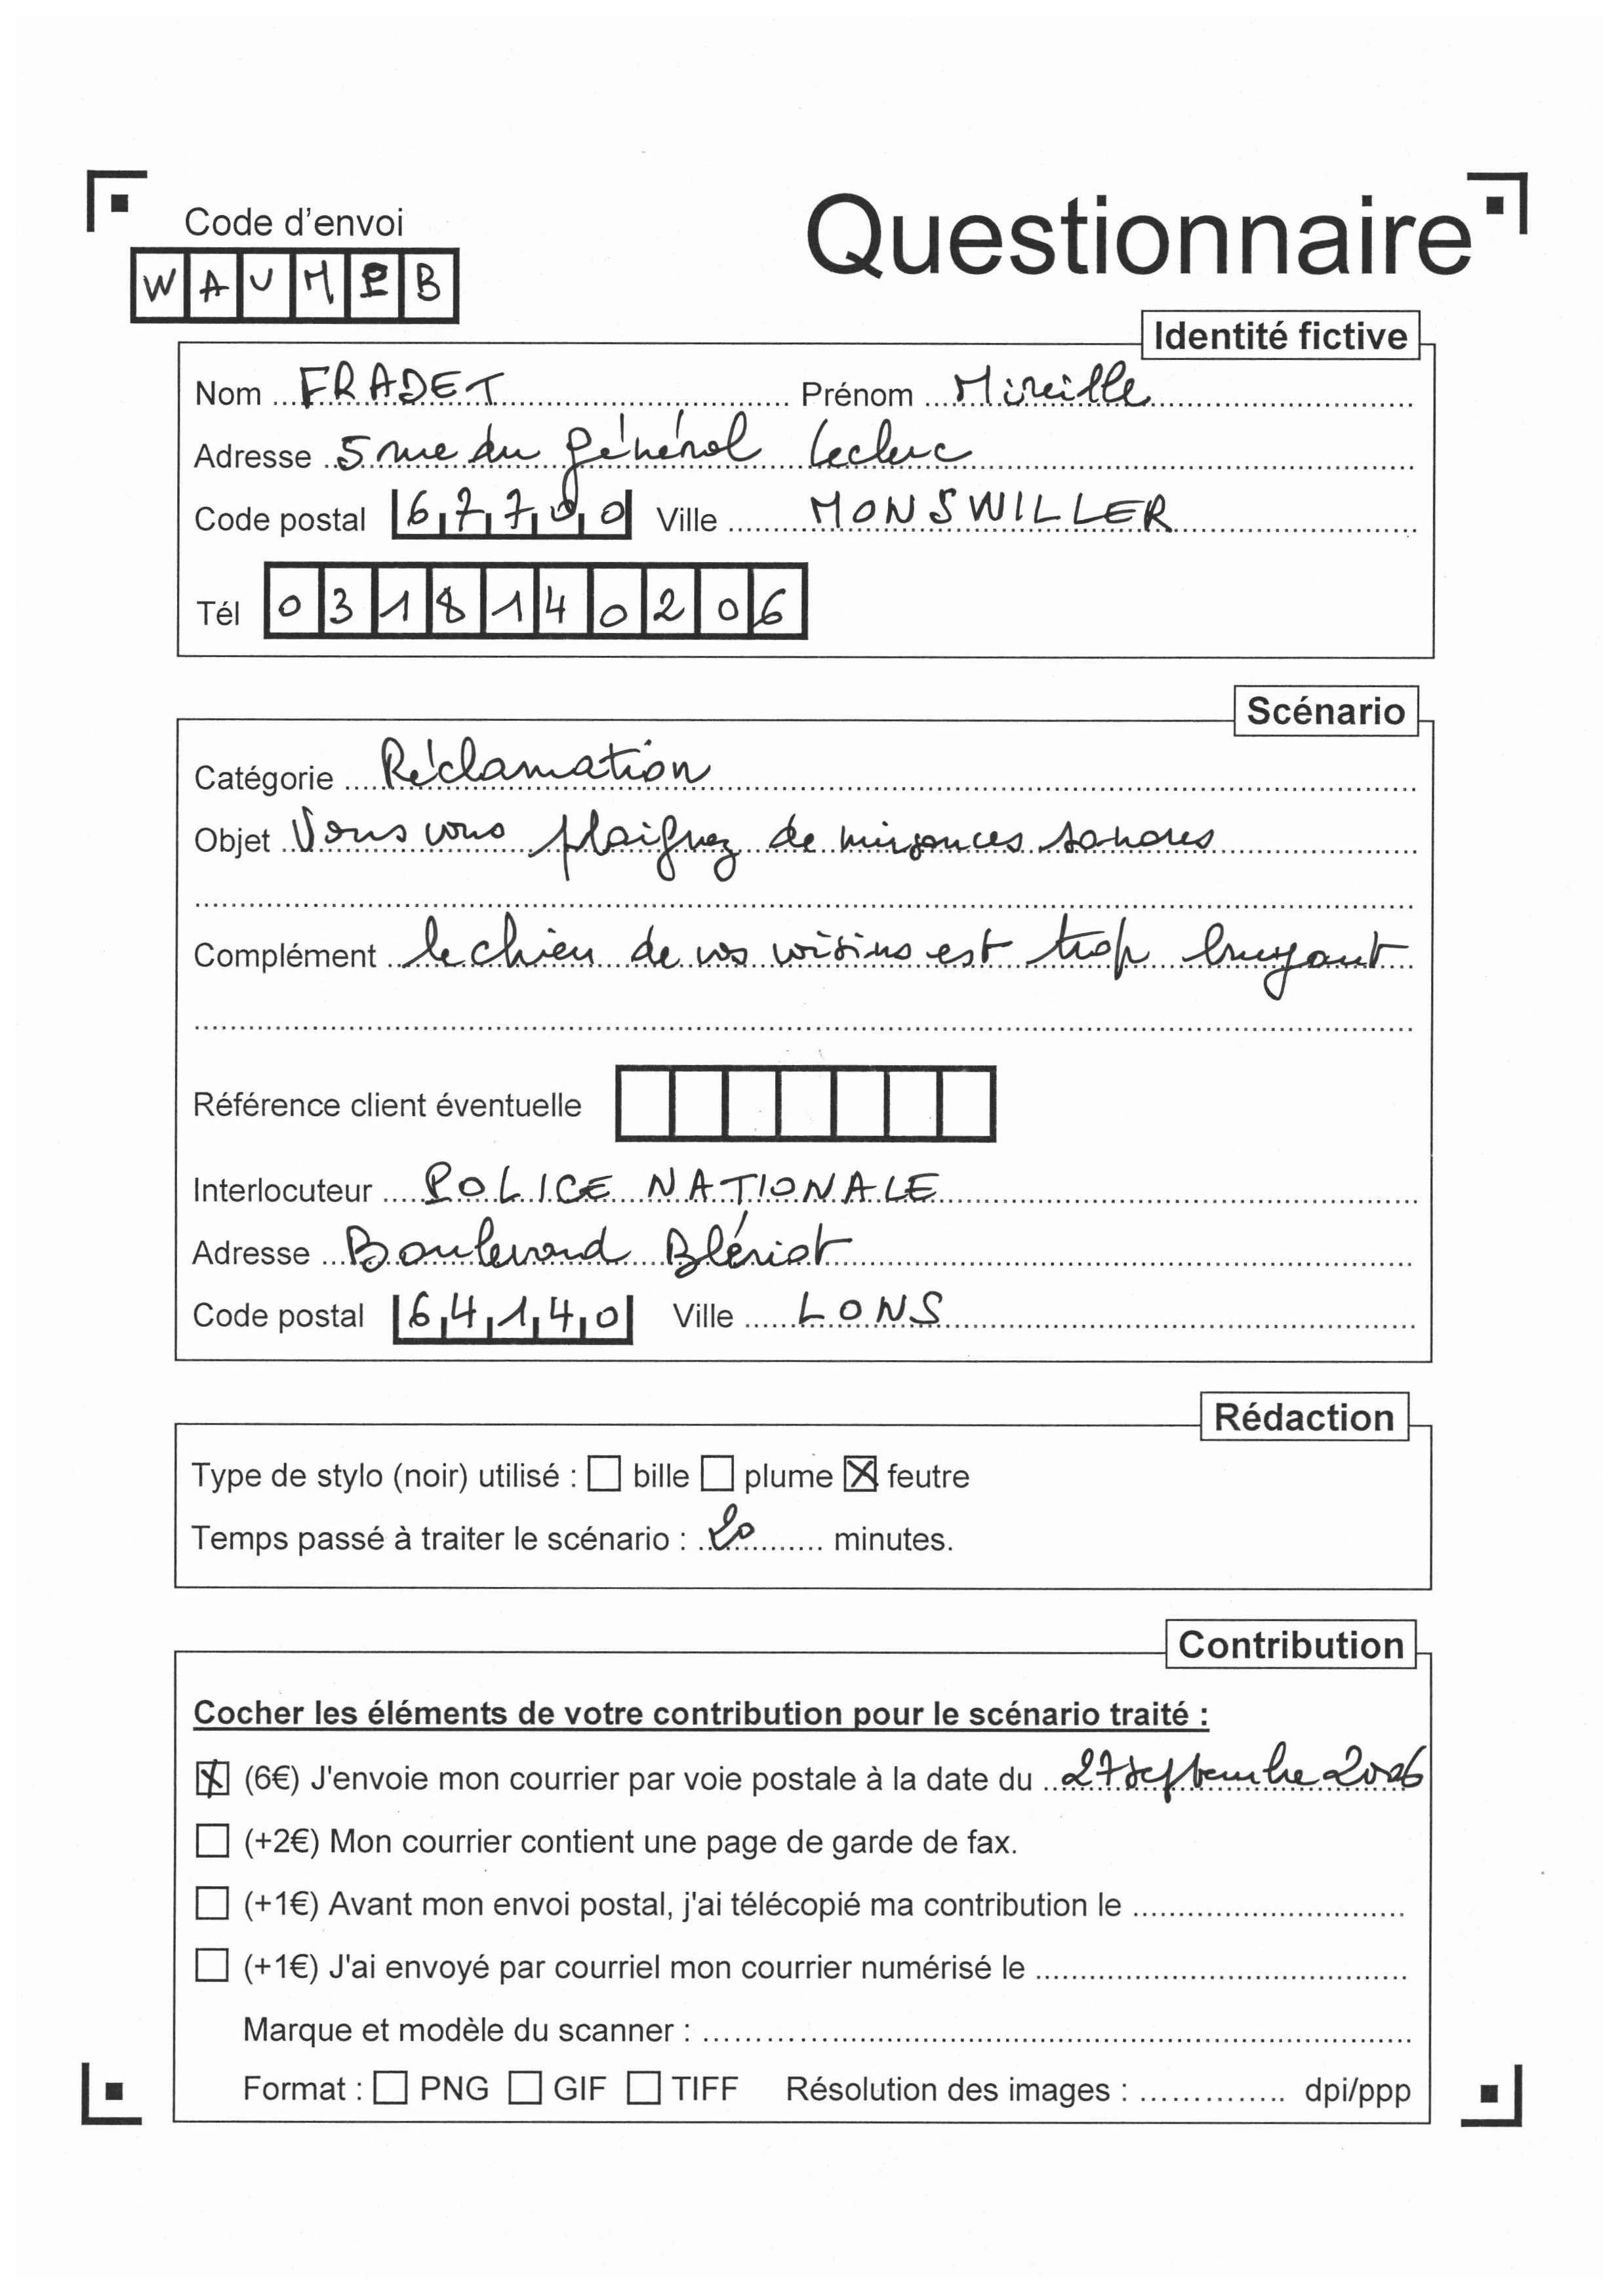 Code d'envoi
Questionnaire
W A U M P B
Identité fictive
Nom FRADET Prénom Mireille
Adresse 5 rue du général Leclerc
Code postal 67700 Ville MONSWILLER
Tél 0318140206
Scénario
Catégorie Réclamation
Objet Vous vous plaignez de nuisances sonores
Complément le chien de vos voisins est trop bruyant
Référence client éventuelle
Interlocuteur POLICE NATIONALE
Adresse Boulevard Blériot
Code postal 64140 Ville LONS
Rédaction
Type de stylo (noir) utilisé : bille plume feutre
Temps passé à traiter le scénario : 20 minutes.
Contribution
Cocher les éléments de votre contribution pour le scénario traité :
(6€) J'envoie mon courrier par voie postale à la date du 27 septembre 2006
(+2€) Mon courrier contient une page de garde de fax.
(+1€) Avant mon envoi postal, j'ai télécopié ma contribution le
(+1€) J'ai envoyé par courriel mon courrier numérisé le
Marque et modèle du scanner :
Format : PNG GIF TIFF Résolution des images : dpi/ppp